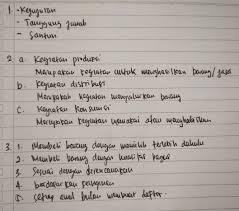 1. - Kejujuran
- Tanggung jawab
- Santun
2. a. Kegiatan produksi
Merupakan kegiatan untuk menghasilkan barang/jasa
b. Kegiatan distribusi
Merupakan kegiatan menyalurkan barang
c. Kegiatan konsumsi
Merupakan kegiatan memakai atau menghabiskan
3. 1. Membeli barang dengan memilih terlebih dahulu
2. Membeli barang dengan kualitas bagus
3. Sesuai dengan direncanakan
4. berdasarkan
5. setiap bulan membuat daftar